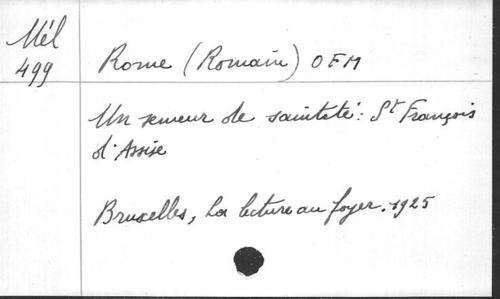 Mél
499
Rome (Romain) OFM
Un semeur de sainteté: St François
d'Assise
Bruxelles, La lecture au foyer. 1925